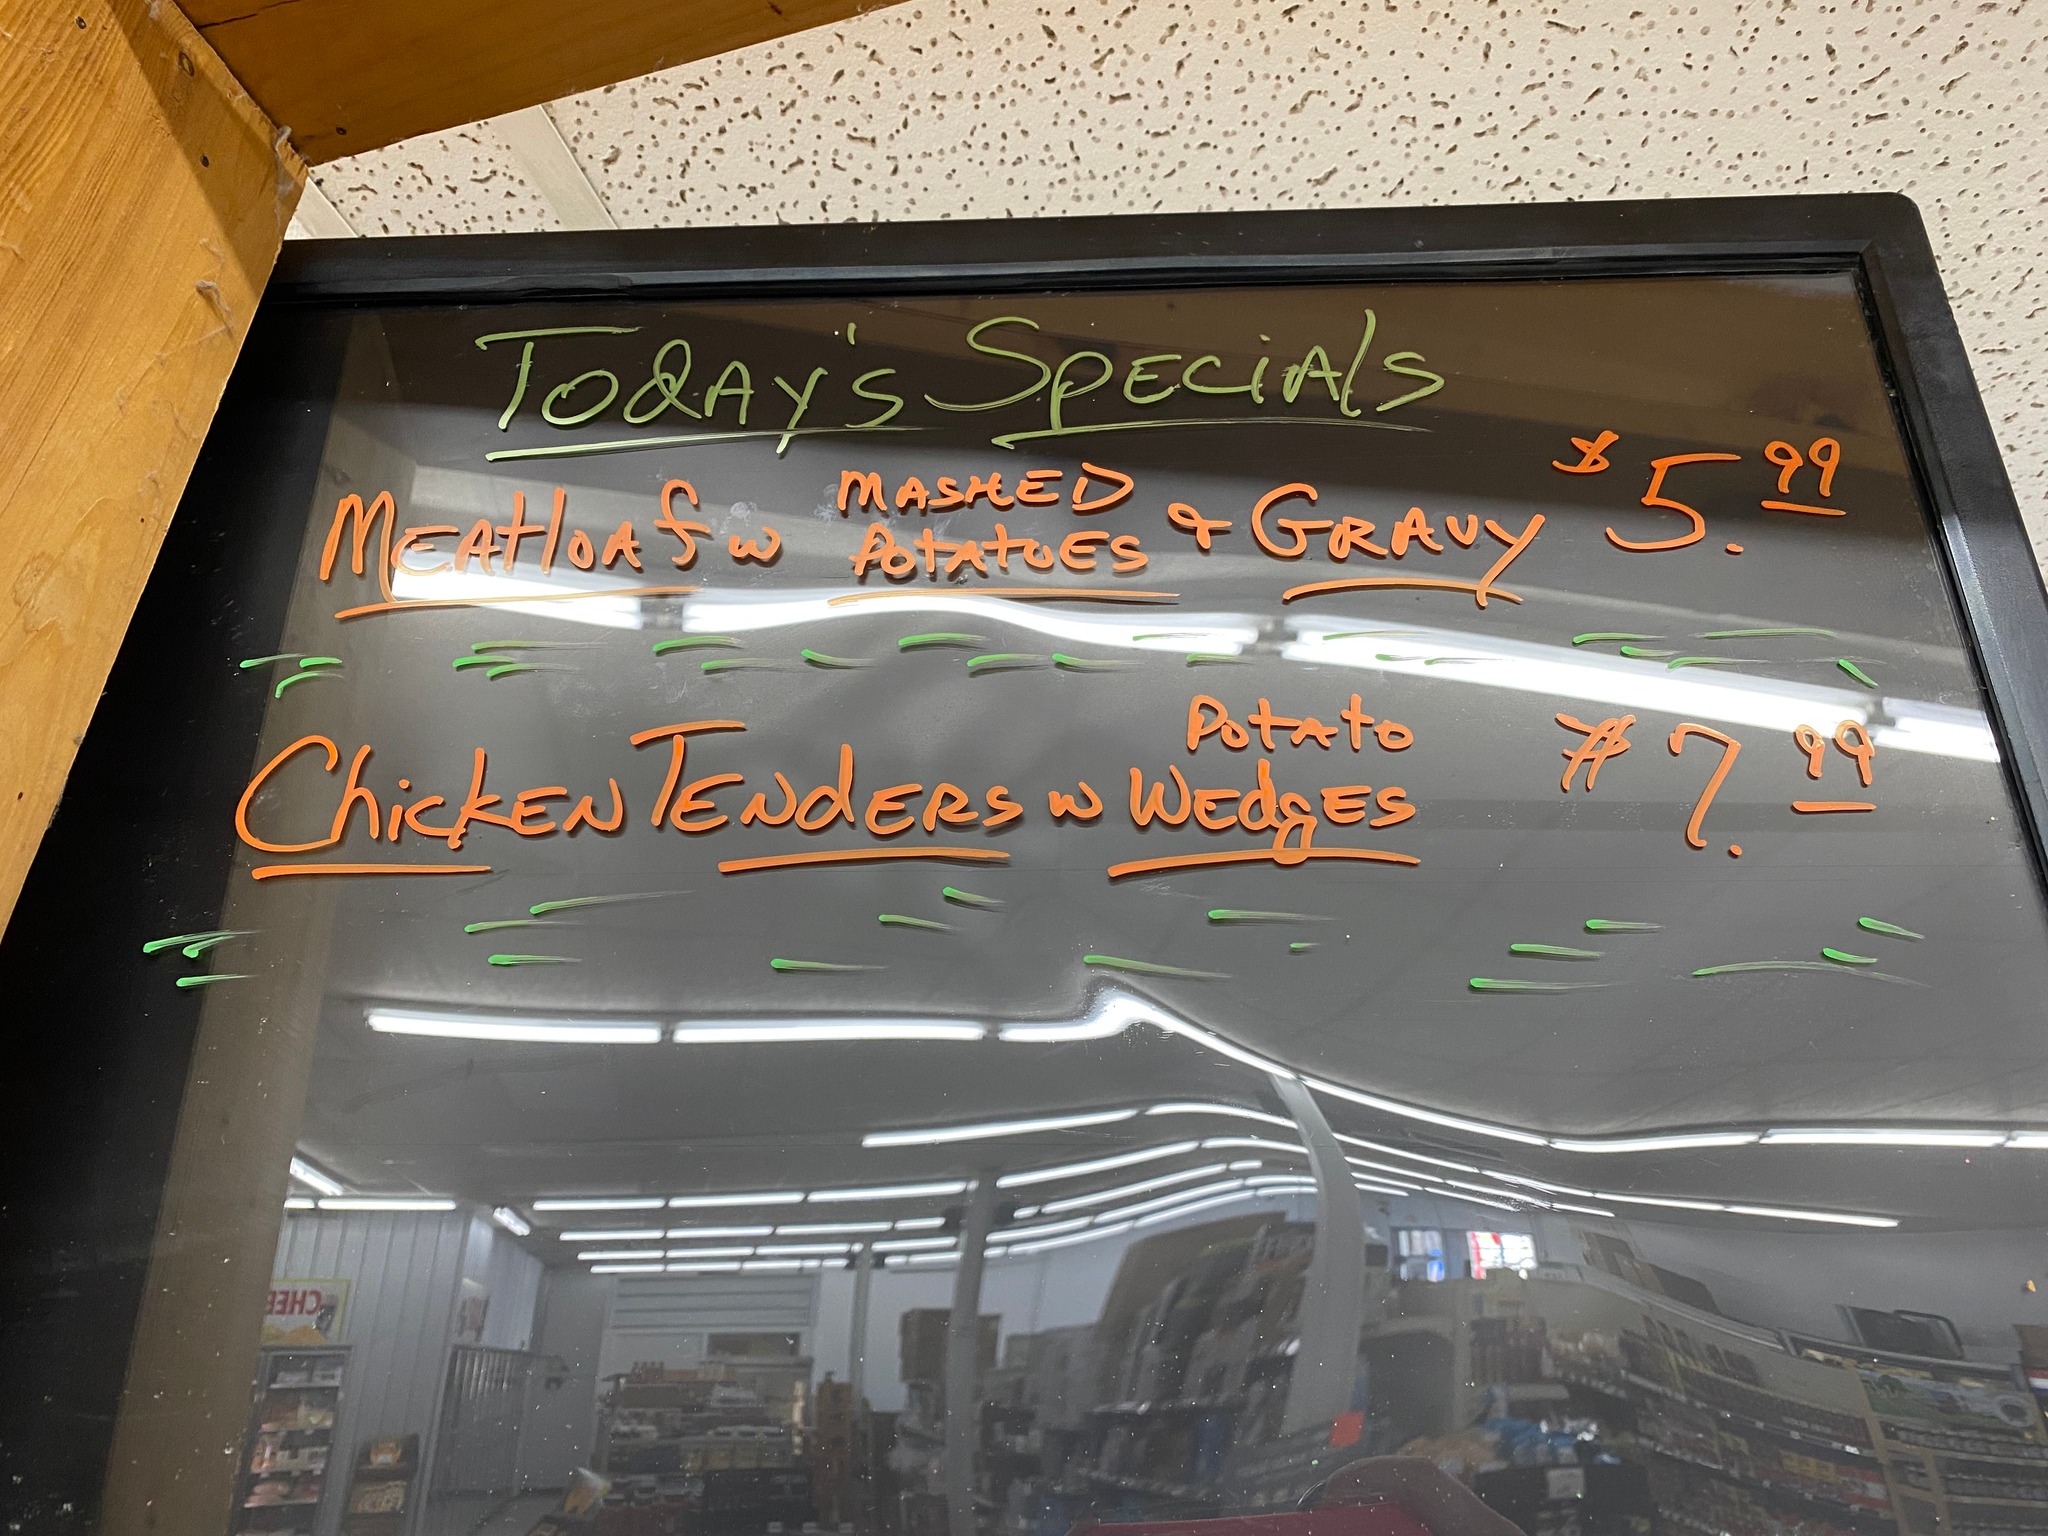 Today's Specials
Meatloaf w Mashed Potatoes & Gravy $5.99
Chicken Tenders w Potato Wedges $7.99